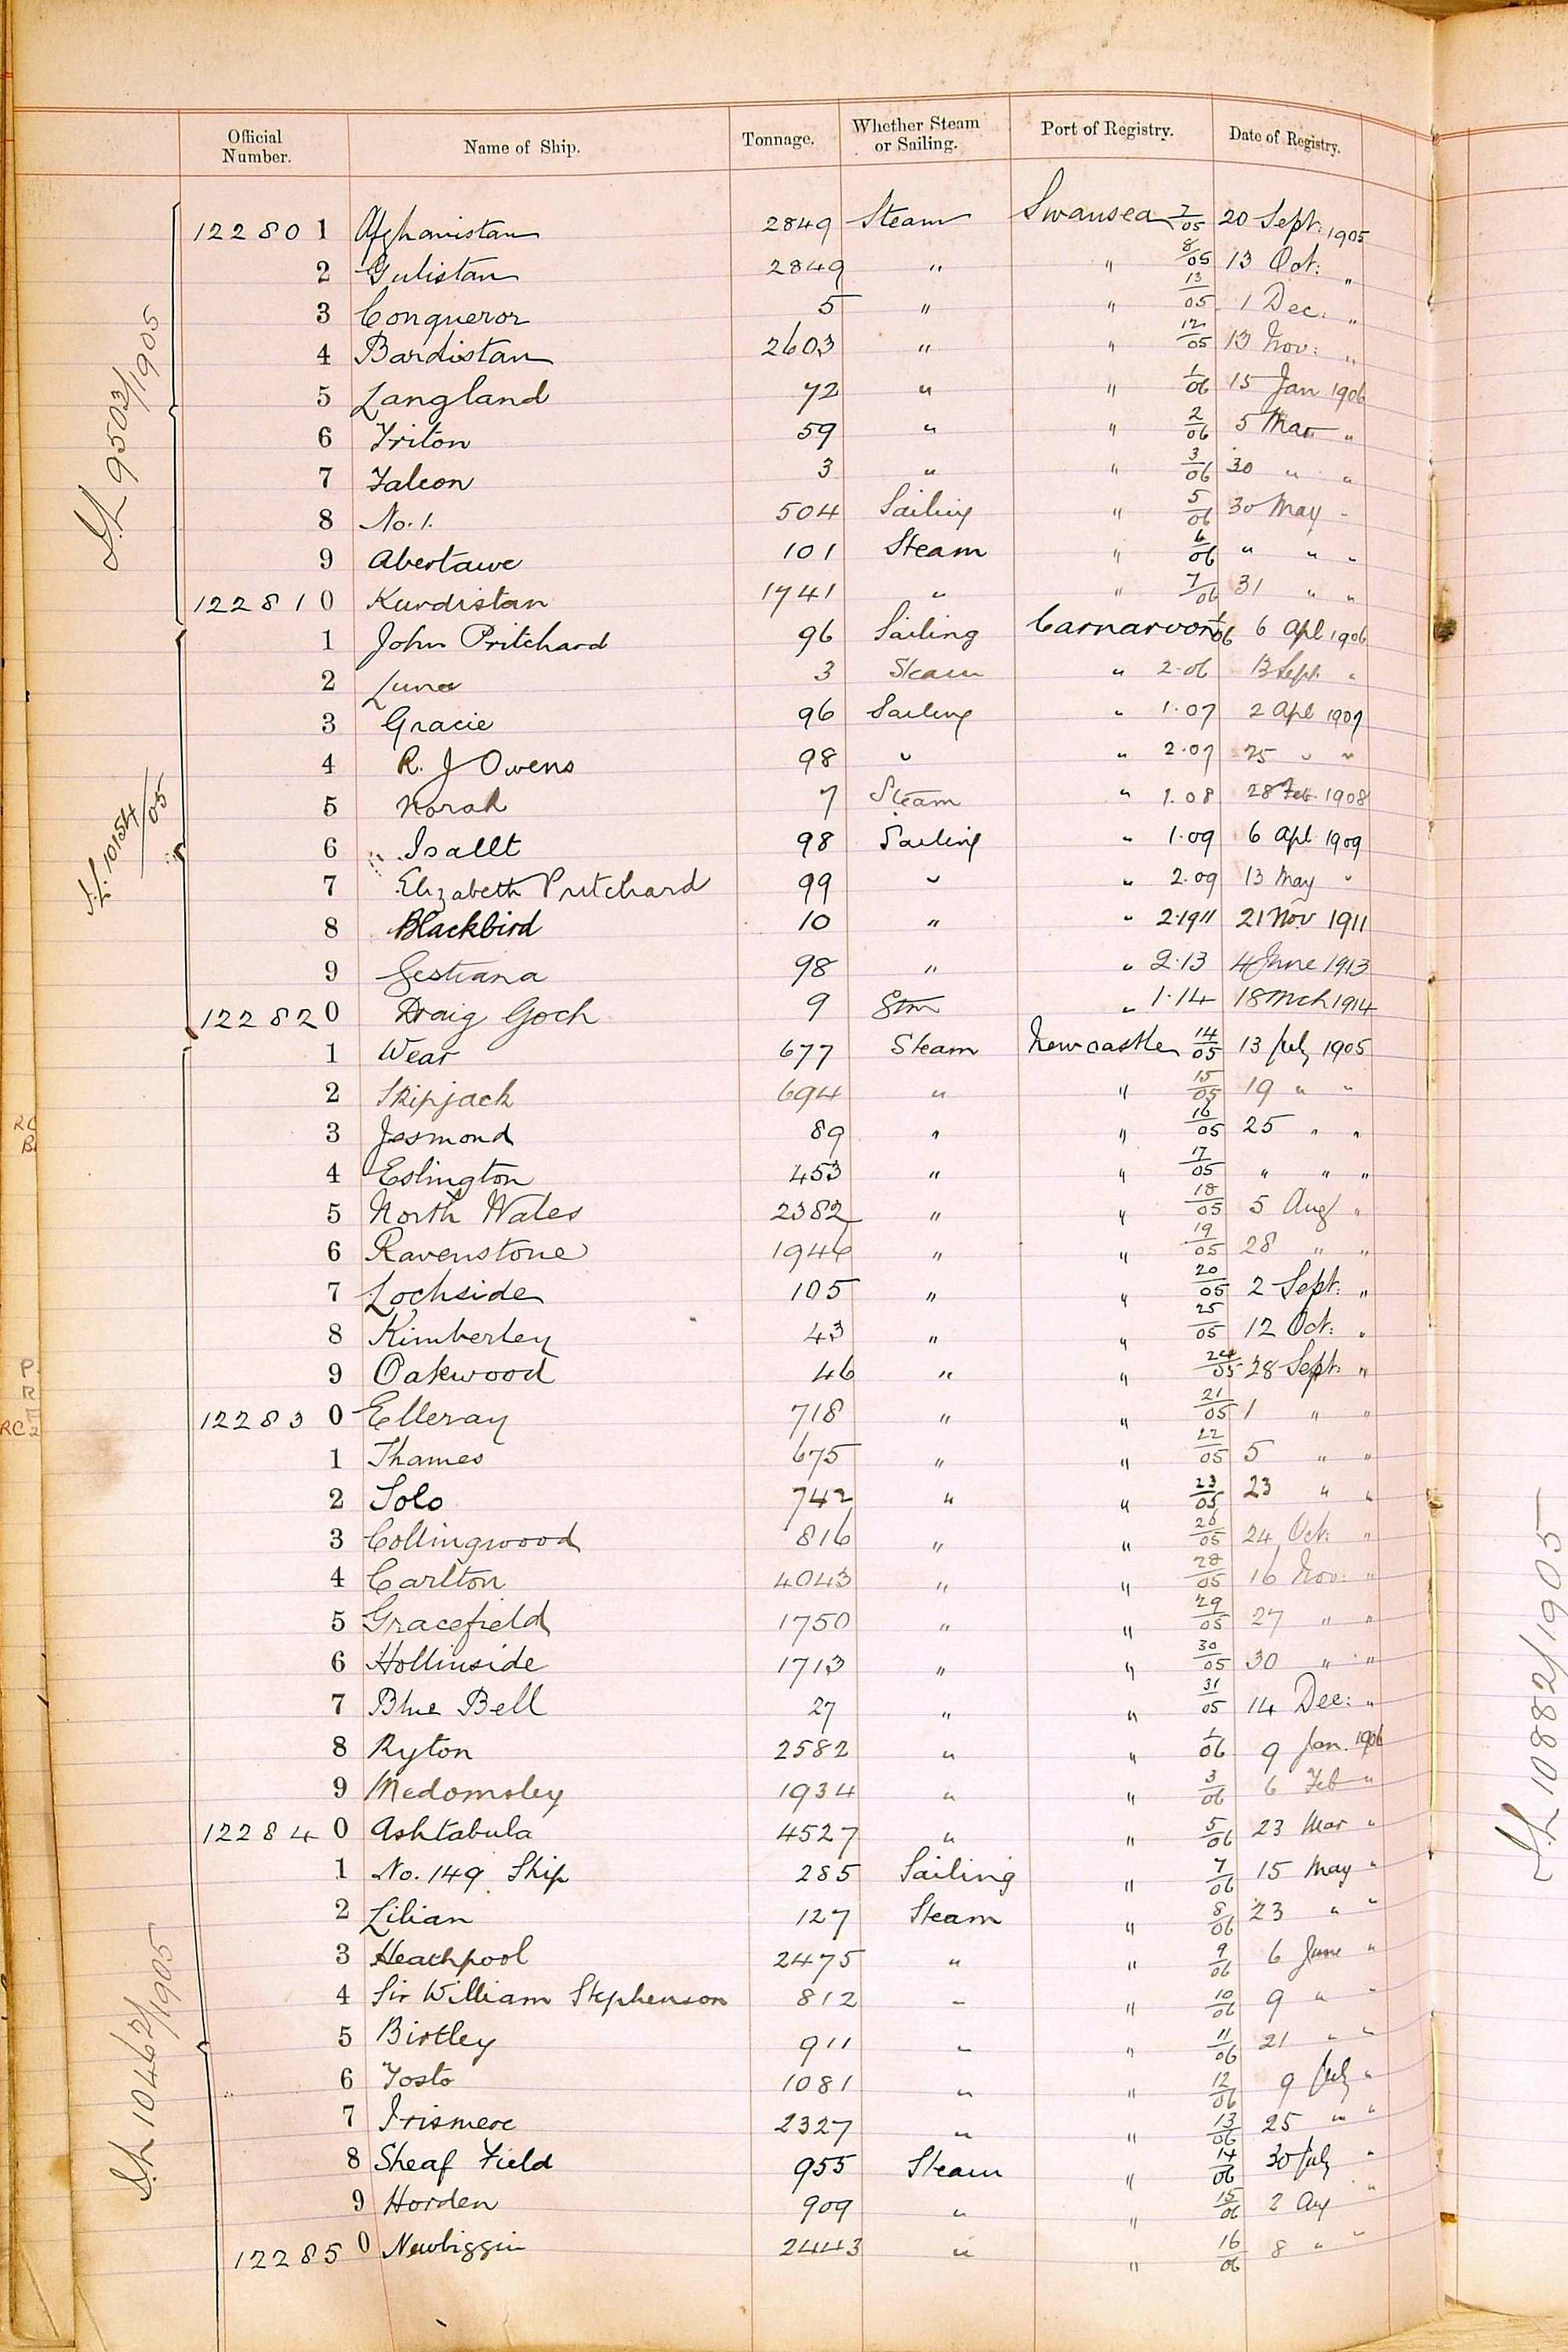 Official Number. Name of Ship. Tonnage. Whether Steam or Sailing. Port of Registry. Date of Registry.
122801 Afghanistan 2849 Steam Swansea 7/05 20 Sept: 1905
2 Gulistan 2849 " " 8/05 13 Oct: "
3 Conqueror 5 " " 13/05 1 Dec: "
4 Bardistan 2603 " " 12/05 13 Nov: "
5 Langland 72 " " 1/06 15 Jan 1906
6 Triton 59 " " 2/06 5 Mar "
7 Falcon 3 " " 3/06 30 " "
8 No. 1. 504 Sailing " 5/06 30 May "
9 Abertawe 101 Steam " 6/06 " " "
122810 Kurdistan 1741 " " 7/06 31 " "
1 John Pritchard 96 Sailing Carnarvon 1/06 6 Apl 1906
2 Luna 3 Steam " 2.06 13 Sept "
3 Gracie 96 Sailing " 1.07 2 Apl 1907
4 R. J Owens 98 " " 2.07 25 " "
5 Norah 7 Steam " 1.08 28 Feb. 1908
6 Isallt 98 Sailing " 1.09 6 Apl 1909
7 Elizabeth Pritchard 99 " " 2.09 13 May "
8 Blackbird 10 " " 2.1911 21 Nov 1911
9 Gestiana 98 " " 2.13 4 June 1913
122820 Draig Goch 9 Stm " 1.14 18 Mch 1914
1 Wear 677 Steam Newcastle 14/05 13 July 1905
2 Skipjack 694 " " 15/05 19 " "
3 Jesmond 89 " " 16/05 25 " "
4 Eslington 453 " " 17/05 " " "
5 North Wales 2382 " " 18/05 5 Aug "
6 Ravenstone 1946 " " 19/05 28 " "
7 Lochside 105 " " 20/05 2 Sept: "
8 Kimberley 43 " " 25/05 12 Oct: "
9 Oakwood 46 " " 24/05 28 Sept: "
122830 Elleray 718 " " 21/05 1 " "
1 Thames 675 " " 22/05 5 " "
2 Solo 742 " " 23/05 23 " "
3 Collingwood 816 " " 26/05 24 Oct: "
4 Carlton 4043 " " 28/05 16 Nov: "
5 Gracefield 1750 " " 29/05 27 " "
6 Hollinside 1713 " " 30/05 30 " "
7 Blue Bell 27 " " 31/05 14 Dec: "
8 Ryton 2582 " " 1/06 9 Jan. 1906
9 Medomsley 1934 " " 3/06 6 Feb "
122840 Ashtabula 4527 " " 5/06 23 Mar "
1 No. 149 Ship 285 Sailing " 7/06 15 May "
2 Lilian 127 Steam " 8/06 23 " "
3 Heathpool 2475 " " 9/06 6 June "
4 Sir William Stephenson 812 " " 10/06 9 " "
5 Birtley 911 " " 11/06 21 " "
6 Tosto 1081 " " 12/06 9 July "
7 Irismere 2327 " " 13/06 25 " "
8 Sheaf Field 955 Steam " 14/06 30 July "
9 Horden 909 " " 15/06 2 Aug "
122850 Newbiggin 2443 " " 16/06 8 " "
S.L 9503/1905
S.L. 10154/05
S.L 10462/1905
S.L 10882/1905